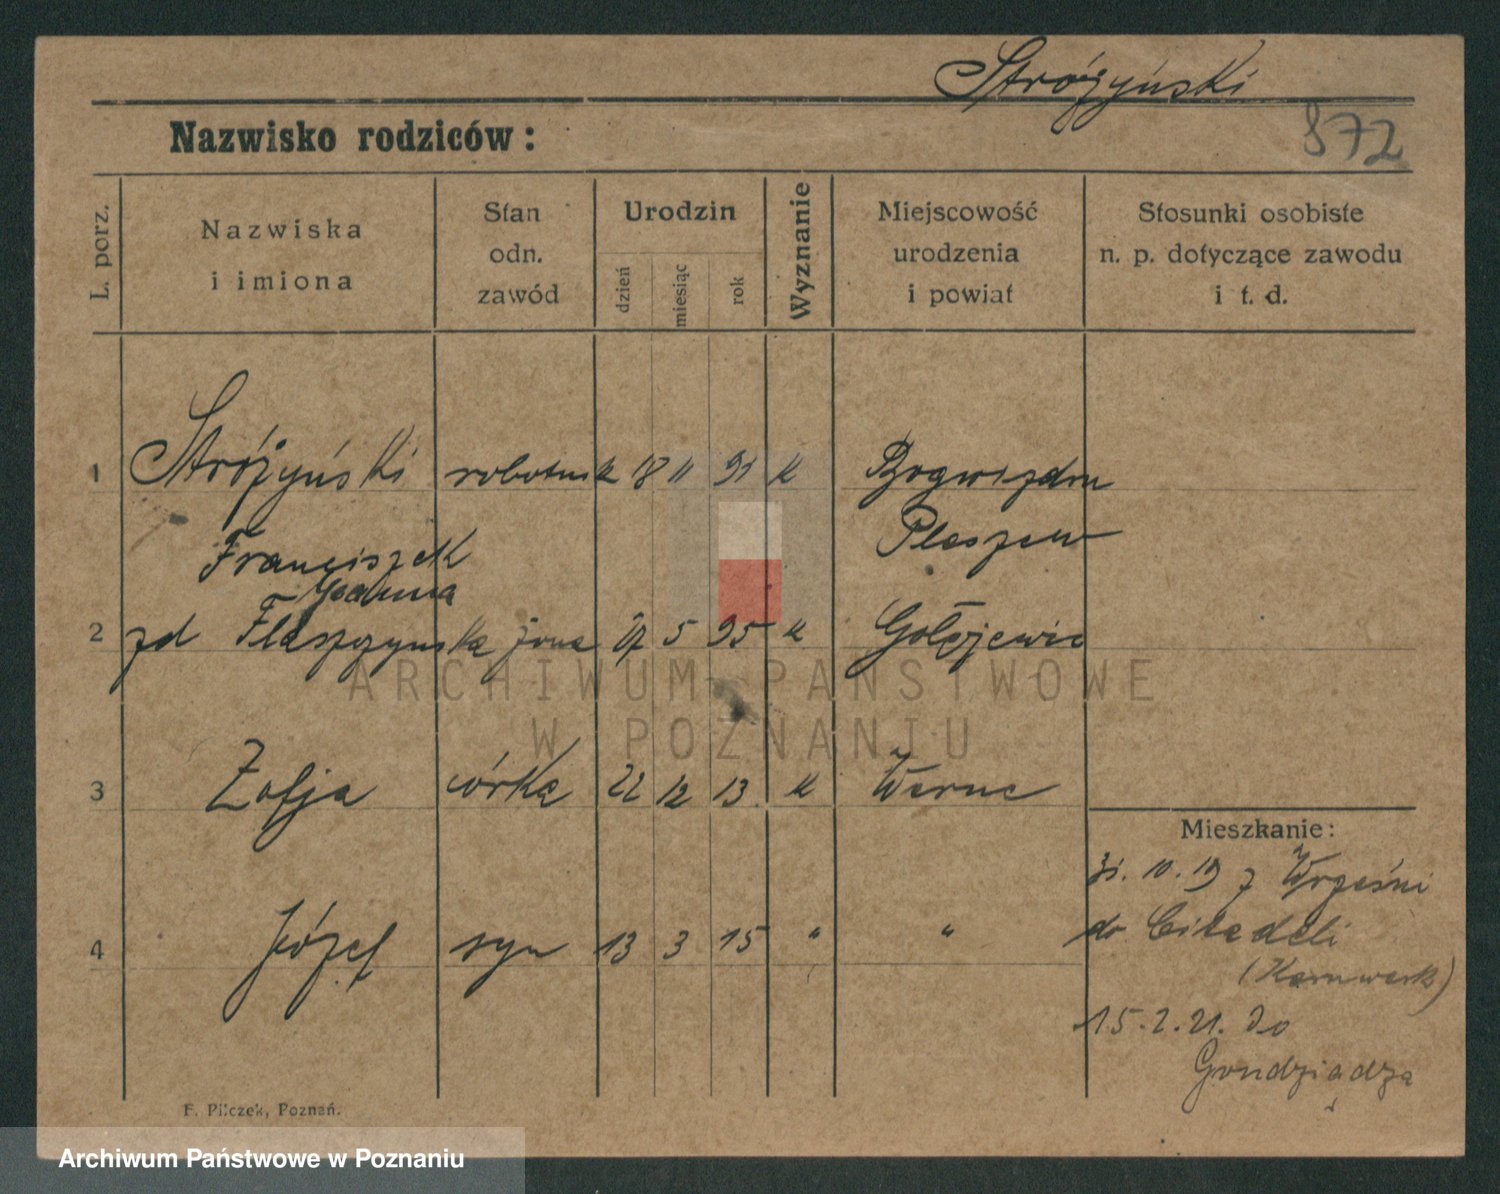 Stróżyński
Nazwisko rodziców:
872
L. porz.
Nazwiska
i imiona
Stan
odn.
zawód
Urodzin
dzień
miesiąc
rok
Wyznanie
Miejscowość
urodzenia
i powiat
Stosunki osobiste
n. p. dotyczące zawodu
i t. d.
1 Stróżyński robotnik 18 11 91 k
Franciszek Pleszew
Joanna
2 zd Flaszczyńska żona 5 95 k
ARCHIWUM PAŃSTWOWE
W POZNANIU
3 Zofja córka 22 12 13 k Werne
Mieszkanie:
31. 10. 19 z Wrześni
4 Józef syn 13 3 15 " "
do Citadeli
(Kernwerk)
15. 2. 21. do
Grudziądza
F. Pilczek, Poznań.
Archiwum Państwowe w Poznaniu